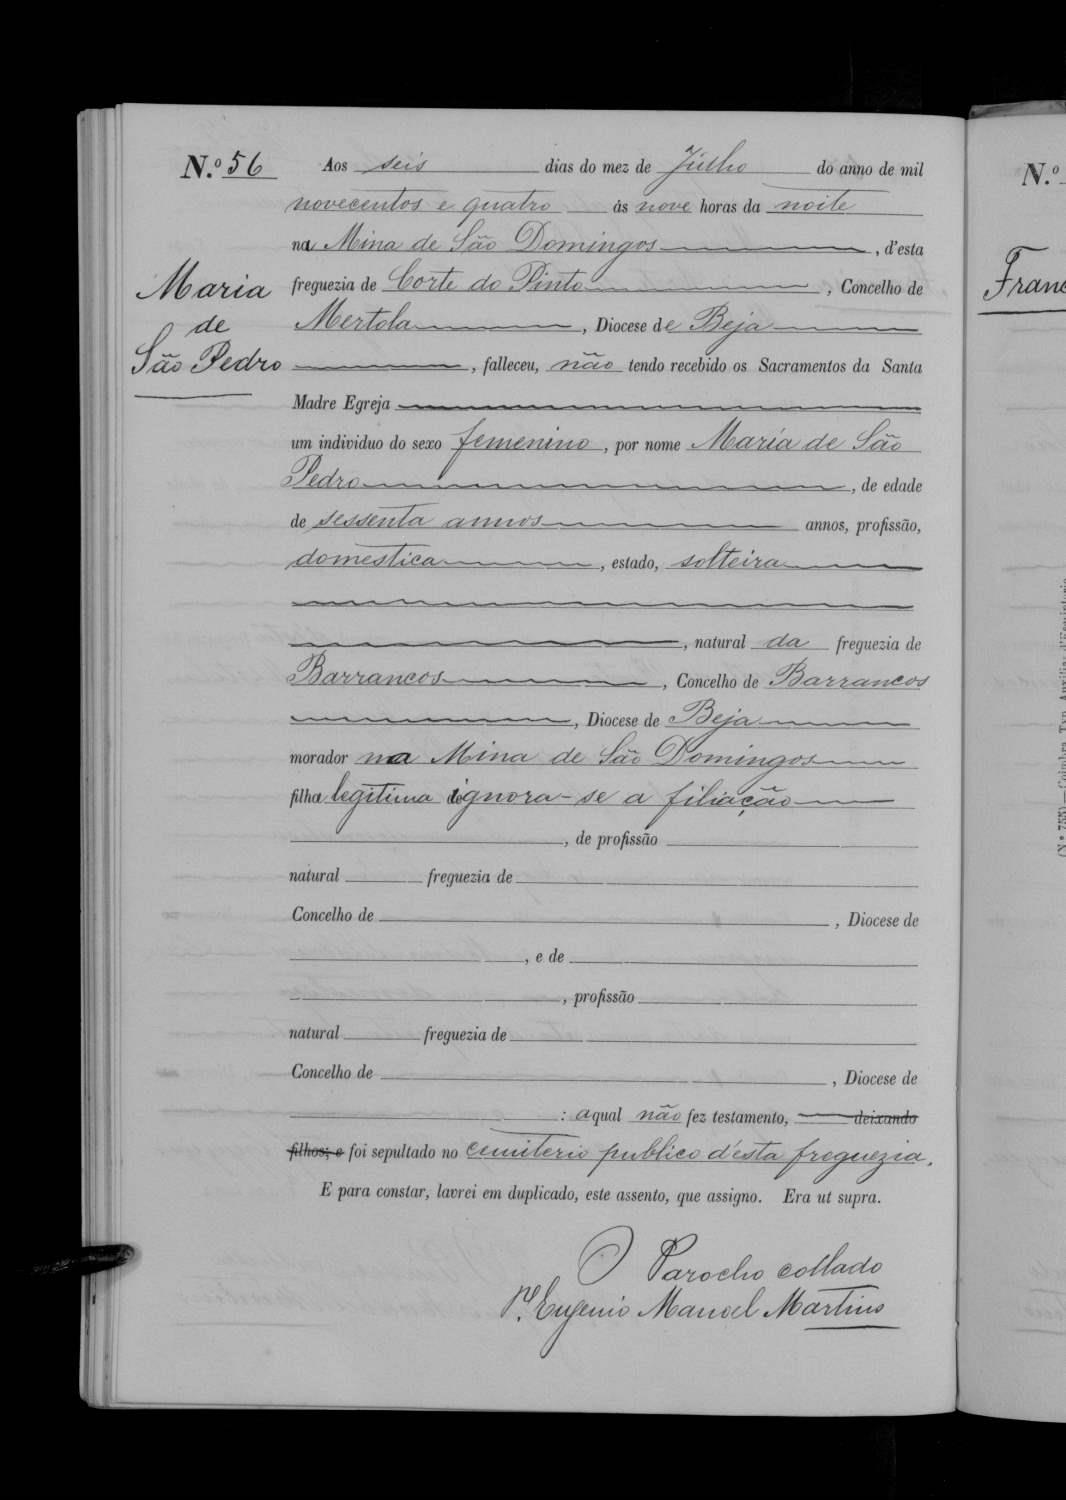 N.º 56 Aos seis dias do mez de Julho do anno de mil
novecentos e quatro ás nove horas da noite
na Mina de São Domingos, d'esta
Maria
de
São Pedro
freguezia de Corte do Pinto, Concelho de
Mertola, Diocese de Beja
, falleceu, não tendo recebido os Sacramentos da Santa
Madre Egreja
um individuo do sexo femenino, por nome Maria de São
Pedro, de edade
de sessenta annos annos, profissão,
domestica, estado, solteira
, natural da freguezia de
Barrancos, Concelho de Barrancos
, Diocese de Beja
morador na Mina de São Domingos
filha legitima de ignora-se a filiação
, de profissão
natural freguezia de
Concelho de , Diocese de
, e de
, profissão
natural freguezia de
Concelho de , Diocese de
: aqual não fez testamento, deixando
filhos; e foi sepultado no cemiterio publico d'esta freguezia.
E para constar, lavrei em duplicado, este assento, que assigno. Era ut supra.
O Parocho collado
P.e Eugenio Manoel Martins
N.º
Franc